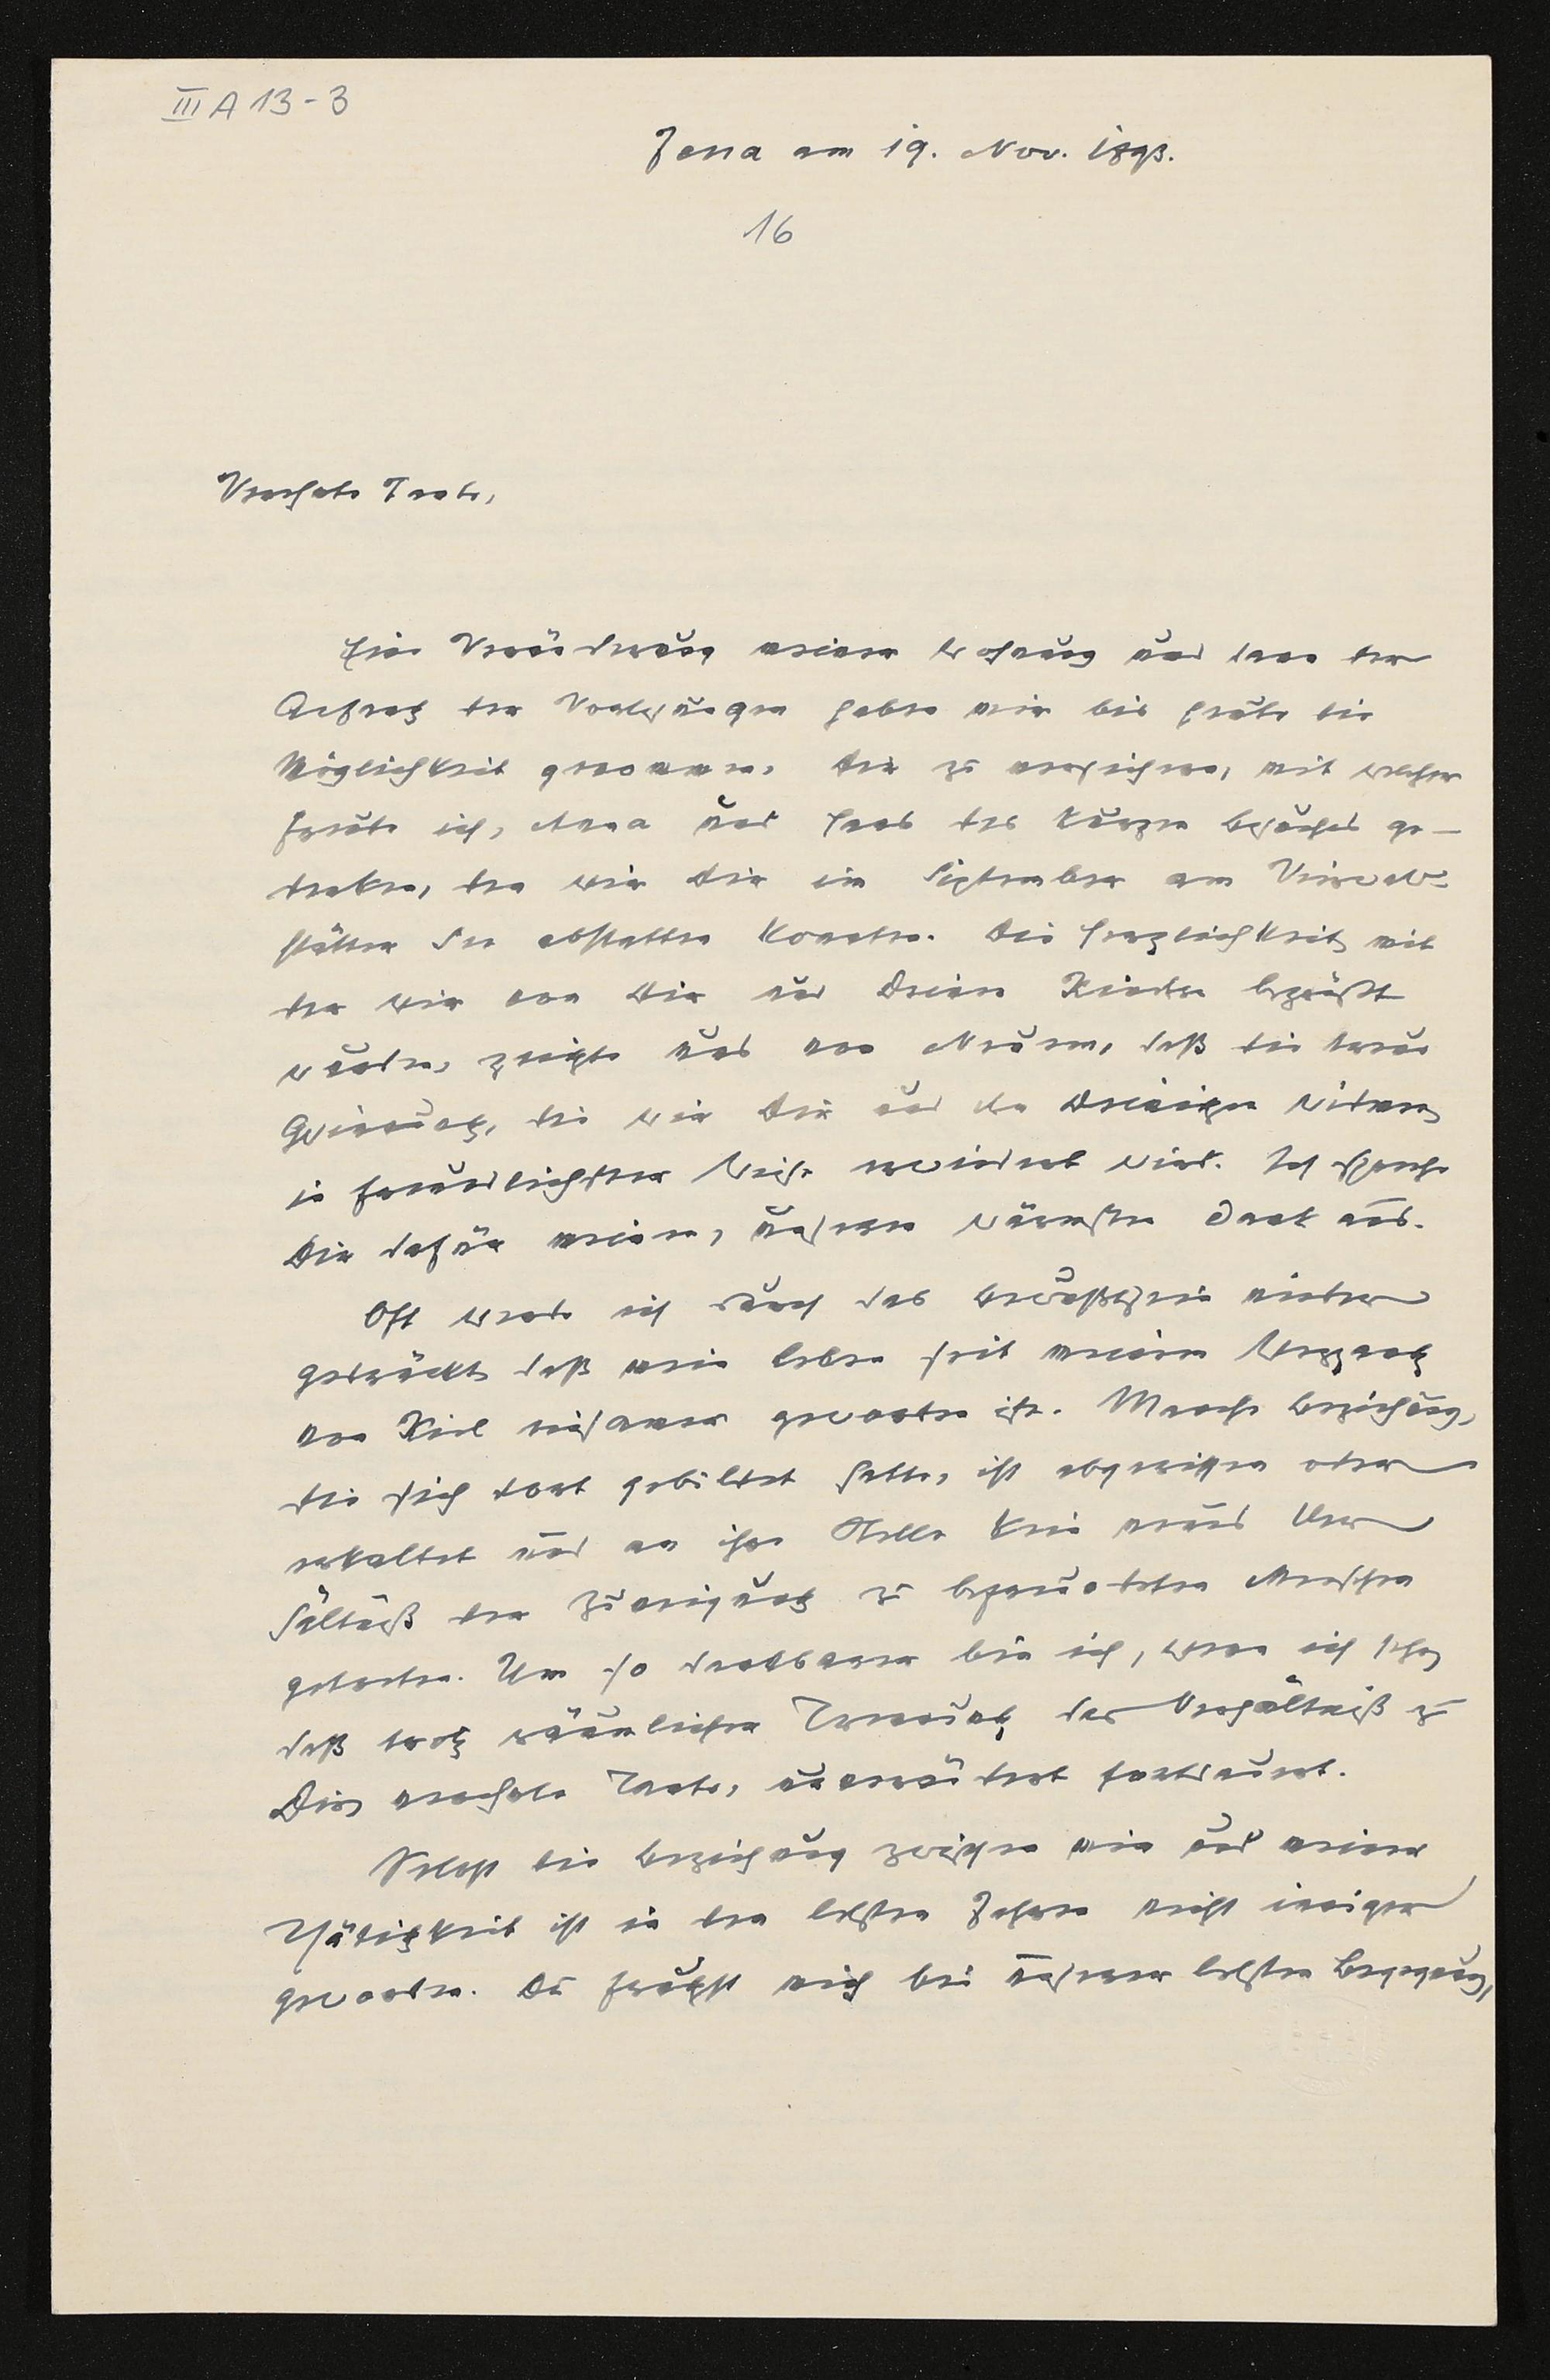 III A 13-3
Jena am 19. Nov. 1893.
16
Verehrte Tante,
Eine Veränderung meiner Wohnung und dann der
Anfang der Vorlesungen haben mir bis heute die
Möglichkeit genommen, Dir zu versichern, mit welcher
Freude ich, Anna und Hans des kurzen Besuches ge-
denken, den wir Dir im September am Vierwald-
stätter See abstatten konnten. Die Herzlichkeit mit
der wir von Dir und Deinen Kindern begrüßt
wurden, zeigte uns von Neuem, daß die treue
Gesinnung, die wir Dir und den Deinigen widmen,
in freundlichster Weise erwiedert wird. Ich spreche
Dir dafür meinen, unseren wärmsten Dank aus.
Oft werde ich durch das Bewußtsein nieder
gedrückt daß mein Leben seit meinem Weggang
von Kiel einsamer geworden ist. Manche Beziehung,
die sich dort gebildet hatte, ist abgerissen oder
erkaltet und an ihre Stelle kein neues Ver
hältniß der Zuneigung zu befreundeten Menschen
getreten. Um so dankbarer bin ich, wenn ich sehe,
daß trotz räumlicher Trennung das Verhältniß zu
Dir, verehrte Tante, unverändert fortdauert.
Selbst die Beziehung zwischen mir und meiner
Thätigkeit ist in den letzten Jahren nicht inniger
geworden. Du frugst mich bei unserer letzten Begegnung,